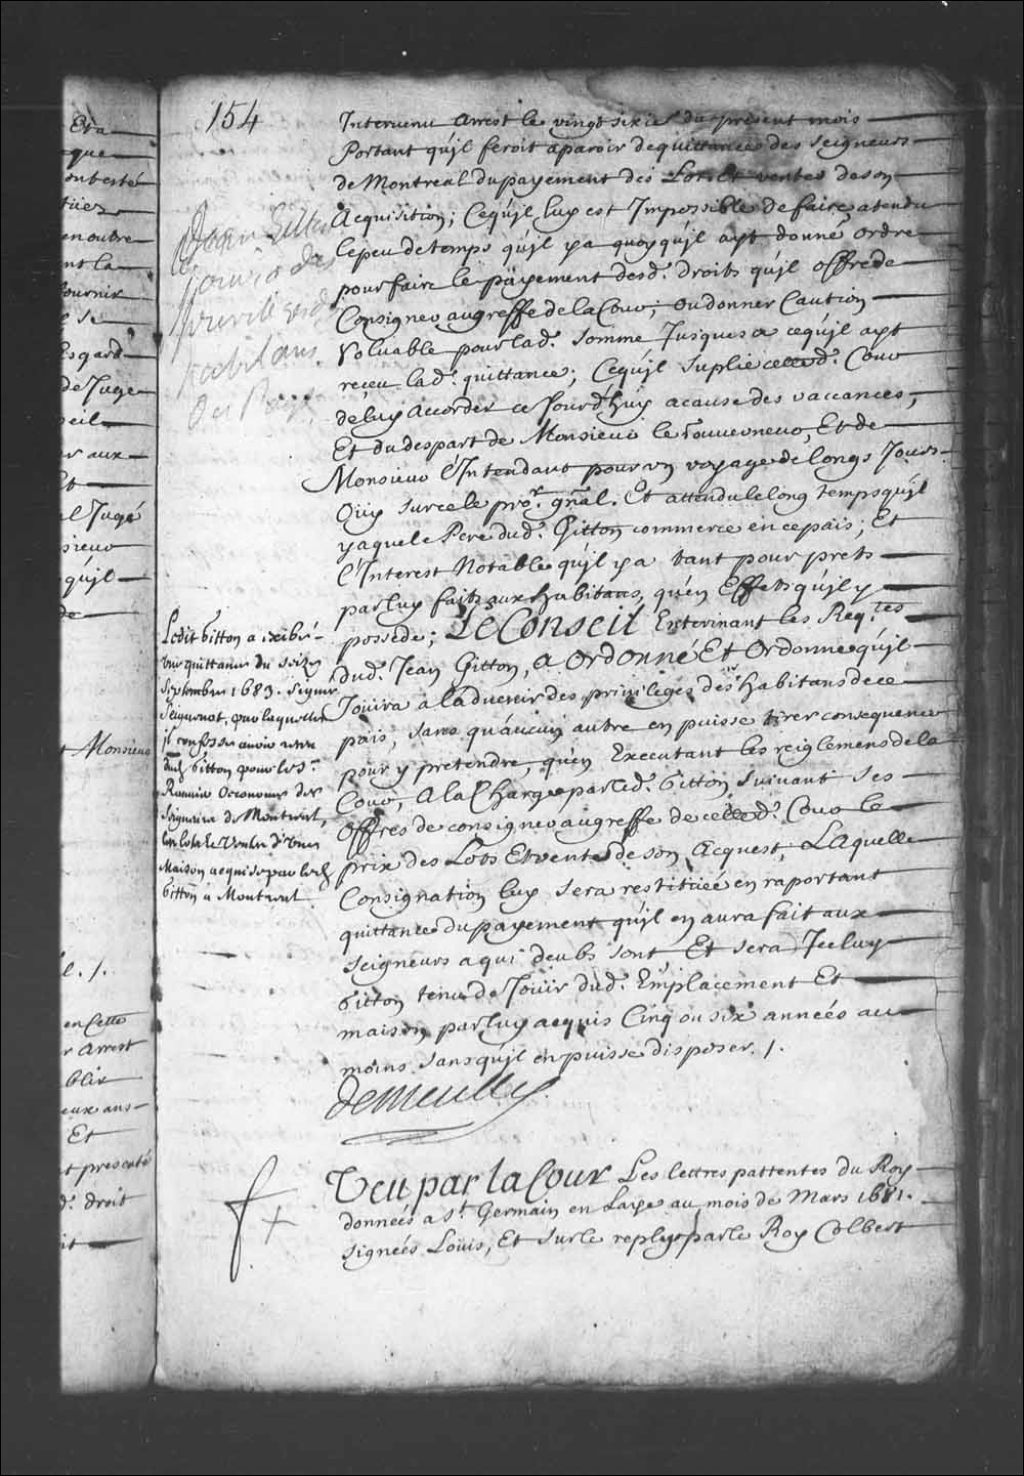 154
Intervenu Arrest le vingt sixie.e du present mois
Portant qu'jl feroit aparoir de quittances des Seigneurs
de Montreal du payement des Lots Et ventes de son
Acquisition; Cequ'jl luy est Impossible de faire atendu
le peu de temps qu'jl y a quoy qu'jl ayt donné ordre
pour faire le payement desd. droits qu'jl offre de
Consigner au greffe de la Cour, ou donner Caution
Valuable pour lad. somme Jusques a ce qu'jl ayt
reçeu lad. quittance; Cequ'jl suplie celled. Cour
de luy accorder ce Jourd'huy a cause des vaccances,
Et du despart de Monsieur le Gouverneur, Et de
Monsieur l'Intendant pour un voyage de longs Jours
Ouy sur ce le pror. gñal. Et attendu le long temps qu'jl
y a que le Pere dud. Gitton commerce en ce pais; Et
l'Interest Notable qu'jl y a tant pour prets
par luy faits aux habitans, qu'en Effets qu'jl y
possede; Le Conseil Enterinant les Reqtes.
dud. Jean Gitton, a ordonné Et Ordonne qu'jl
Jouira à l'advenir des privileges des habitans de ce
pais, sans qu'aucun autre en puisse tirer consequence
pour y pretendre, qu'en Executant les reiglemens de la
Cour, A la Charge par led. Gitton suivant ses
offres de consigner au greffe de celled. Cour le
prix des Lots Et ventes de son Acquest, LAquelle
Consignation luy sera restituée en raportant
quittance du payement qu'jl en aura fait aux
Seigneurs a qui deubs sont, Et sera Jceluy
Gitton tenu de Jouir dud. Emplacement Et
maison par luy acquis Cinq ou six années au
moins sans qu'jl en puisse disposer. /.
DeMeulles
Veu par la Cour Les lettres pattentes du Roy
données a St. Germain en Laye au mois de Mars 1681.
signées Loüis, Et sur le reply par le Roy Colbert
Jean Gitton
jouira des
privileges des
habitans
du Pays
Ledit Gitton a exibé
une quittance du seize
Septembre 1683. signée
Seigneuret, par laquelle
jl confesse avoir receu
dud. Gitton pour le Sr.
Remy Oeconome des
Seigneurs de Montreal,
les lots Et Ventes d'une
Maison acquise par led.
Gitton à Montreal.
Et a
que
ont esté
en outre
nt la
fournir
Esgard
de Juge
seil
r aux
Et
il Jugé
sieur
qu'jl
de
Monsieur
l. /.
en Cette
r Arrest
blir
eux ans
Et
t presenté
d. droit
it